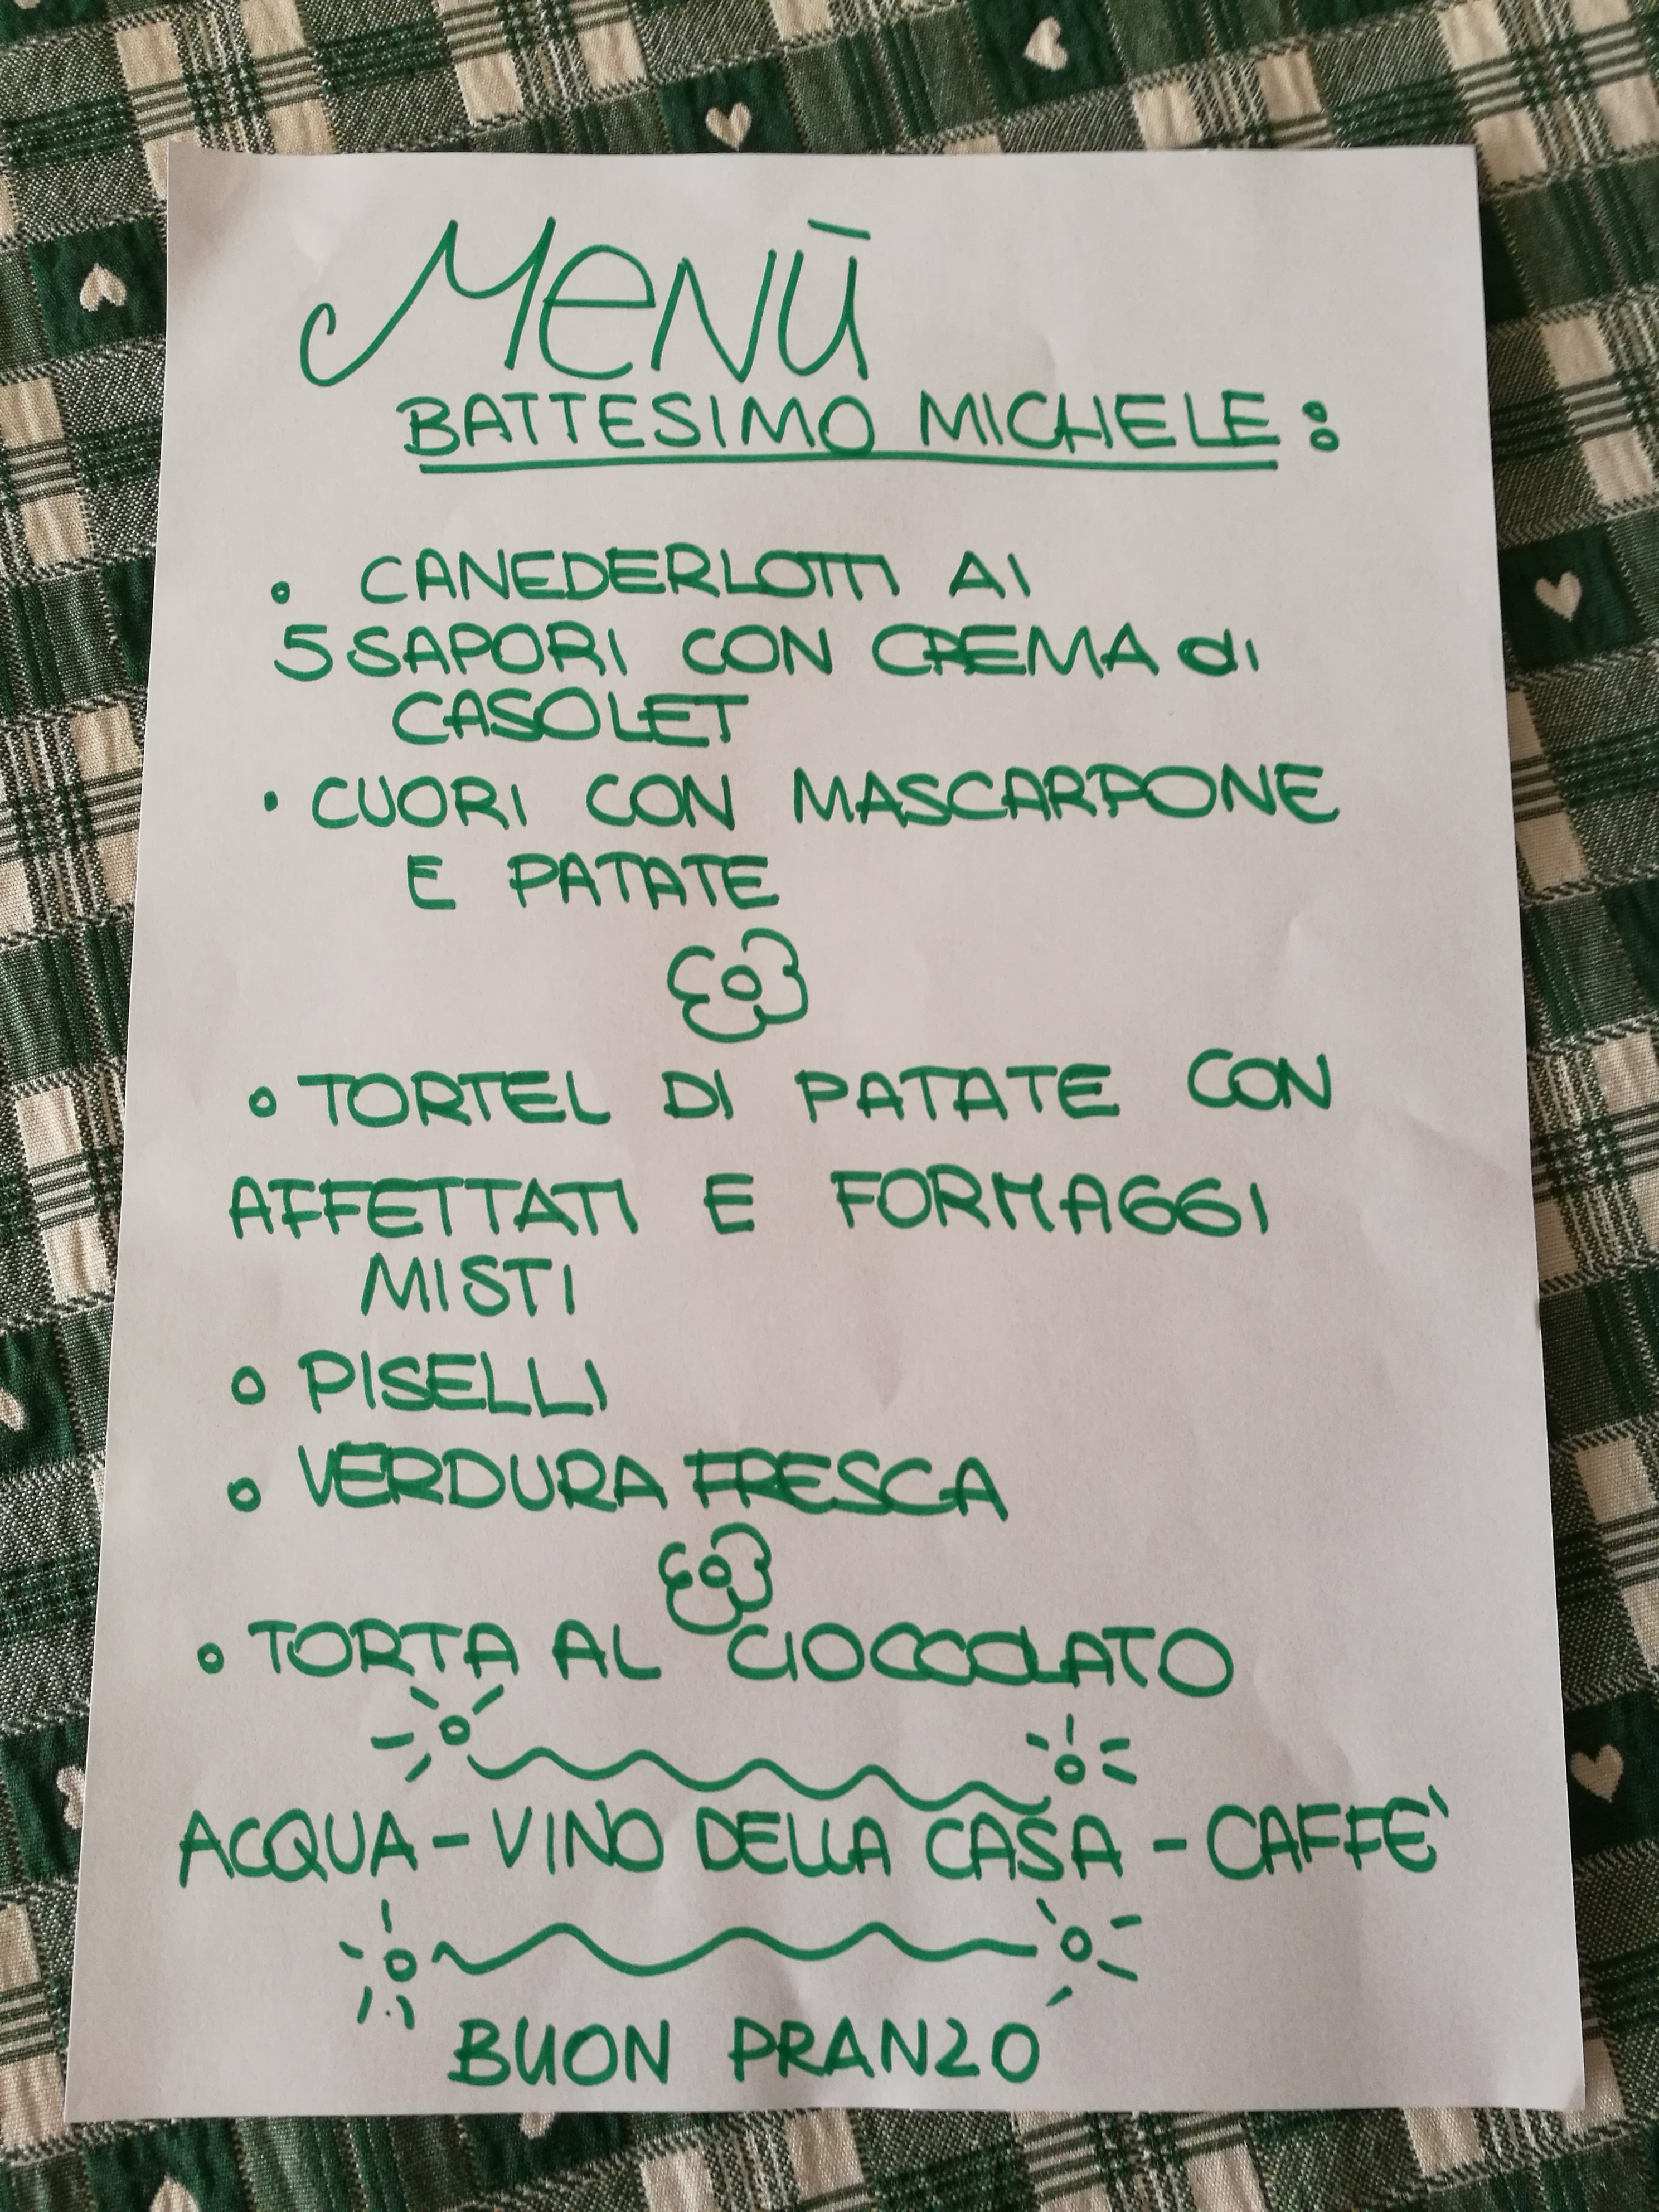 MENÙ
BATTESIMO MICHELE:
• CANEDERLOTTI AI
5 SAPORI CON CREMA di
CASOLET
• CUORI CON MASCARPONE
E PATATE
• TORTEL DI PATATE CON
AFFETTATI E FORMAGGI
MISTI
• PISELLI
• VERDURA FRESCA
• TORTA AL CIOCCOLATO
ACQUA - VINO DELLA CASA - CAFFE'
BUON PRANZO